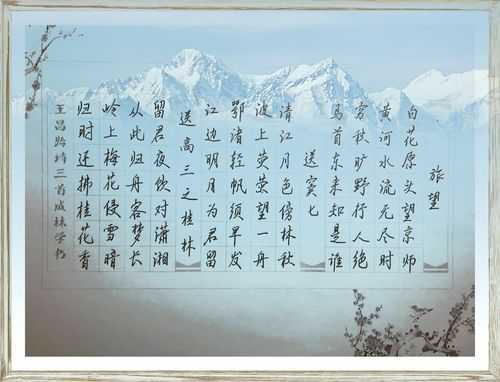 旅望
白花原头望京师
黄河水流无尽时
穷秋旷野行人绝
马首东来知是谁
送窦七
清江月色傍林秋
波上荧荧望一舟
鄂渚轻帆须早发
江边明月为君留
送高三之桂林
留君夜饮对潇湘
从此归舟客梦长
岭上梅花侵雪暗
归时还拂桂花香
王昌龄诗三首成林学书